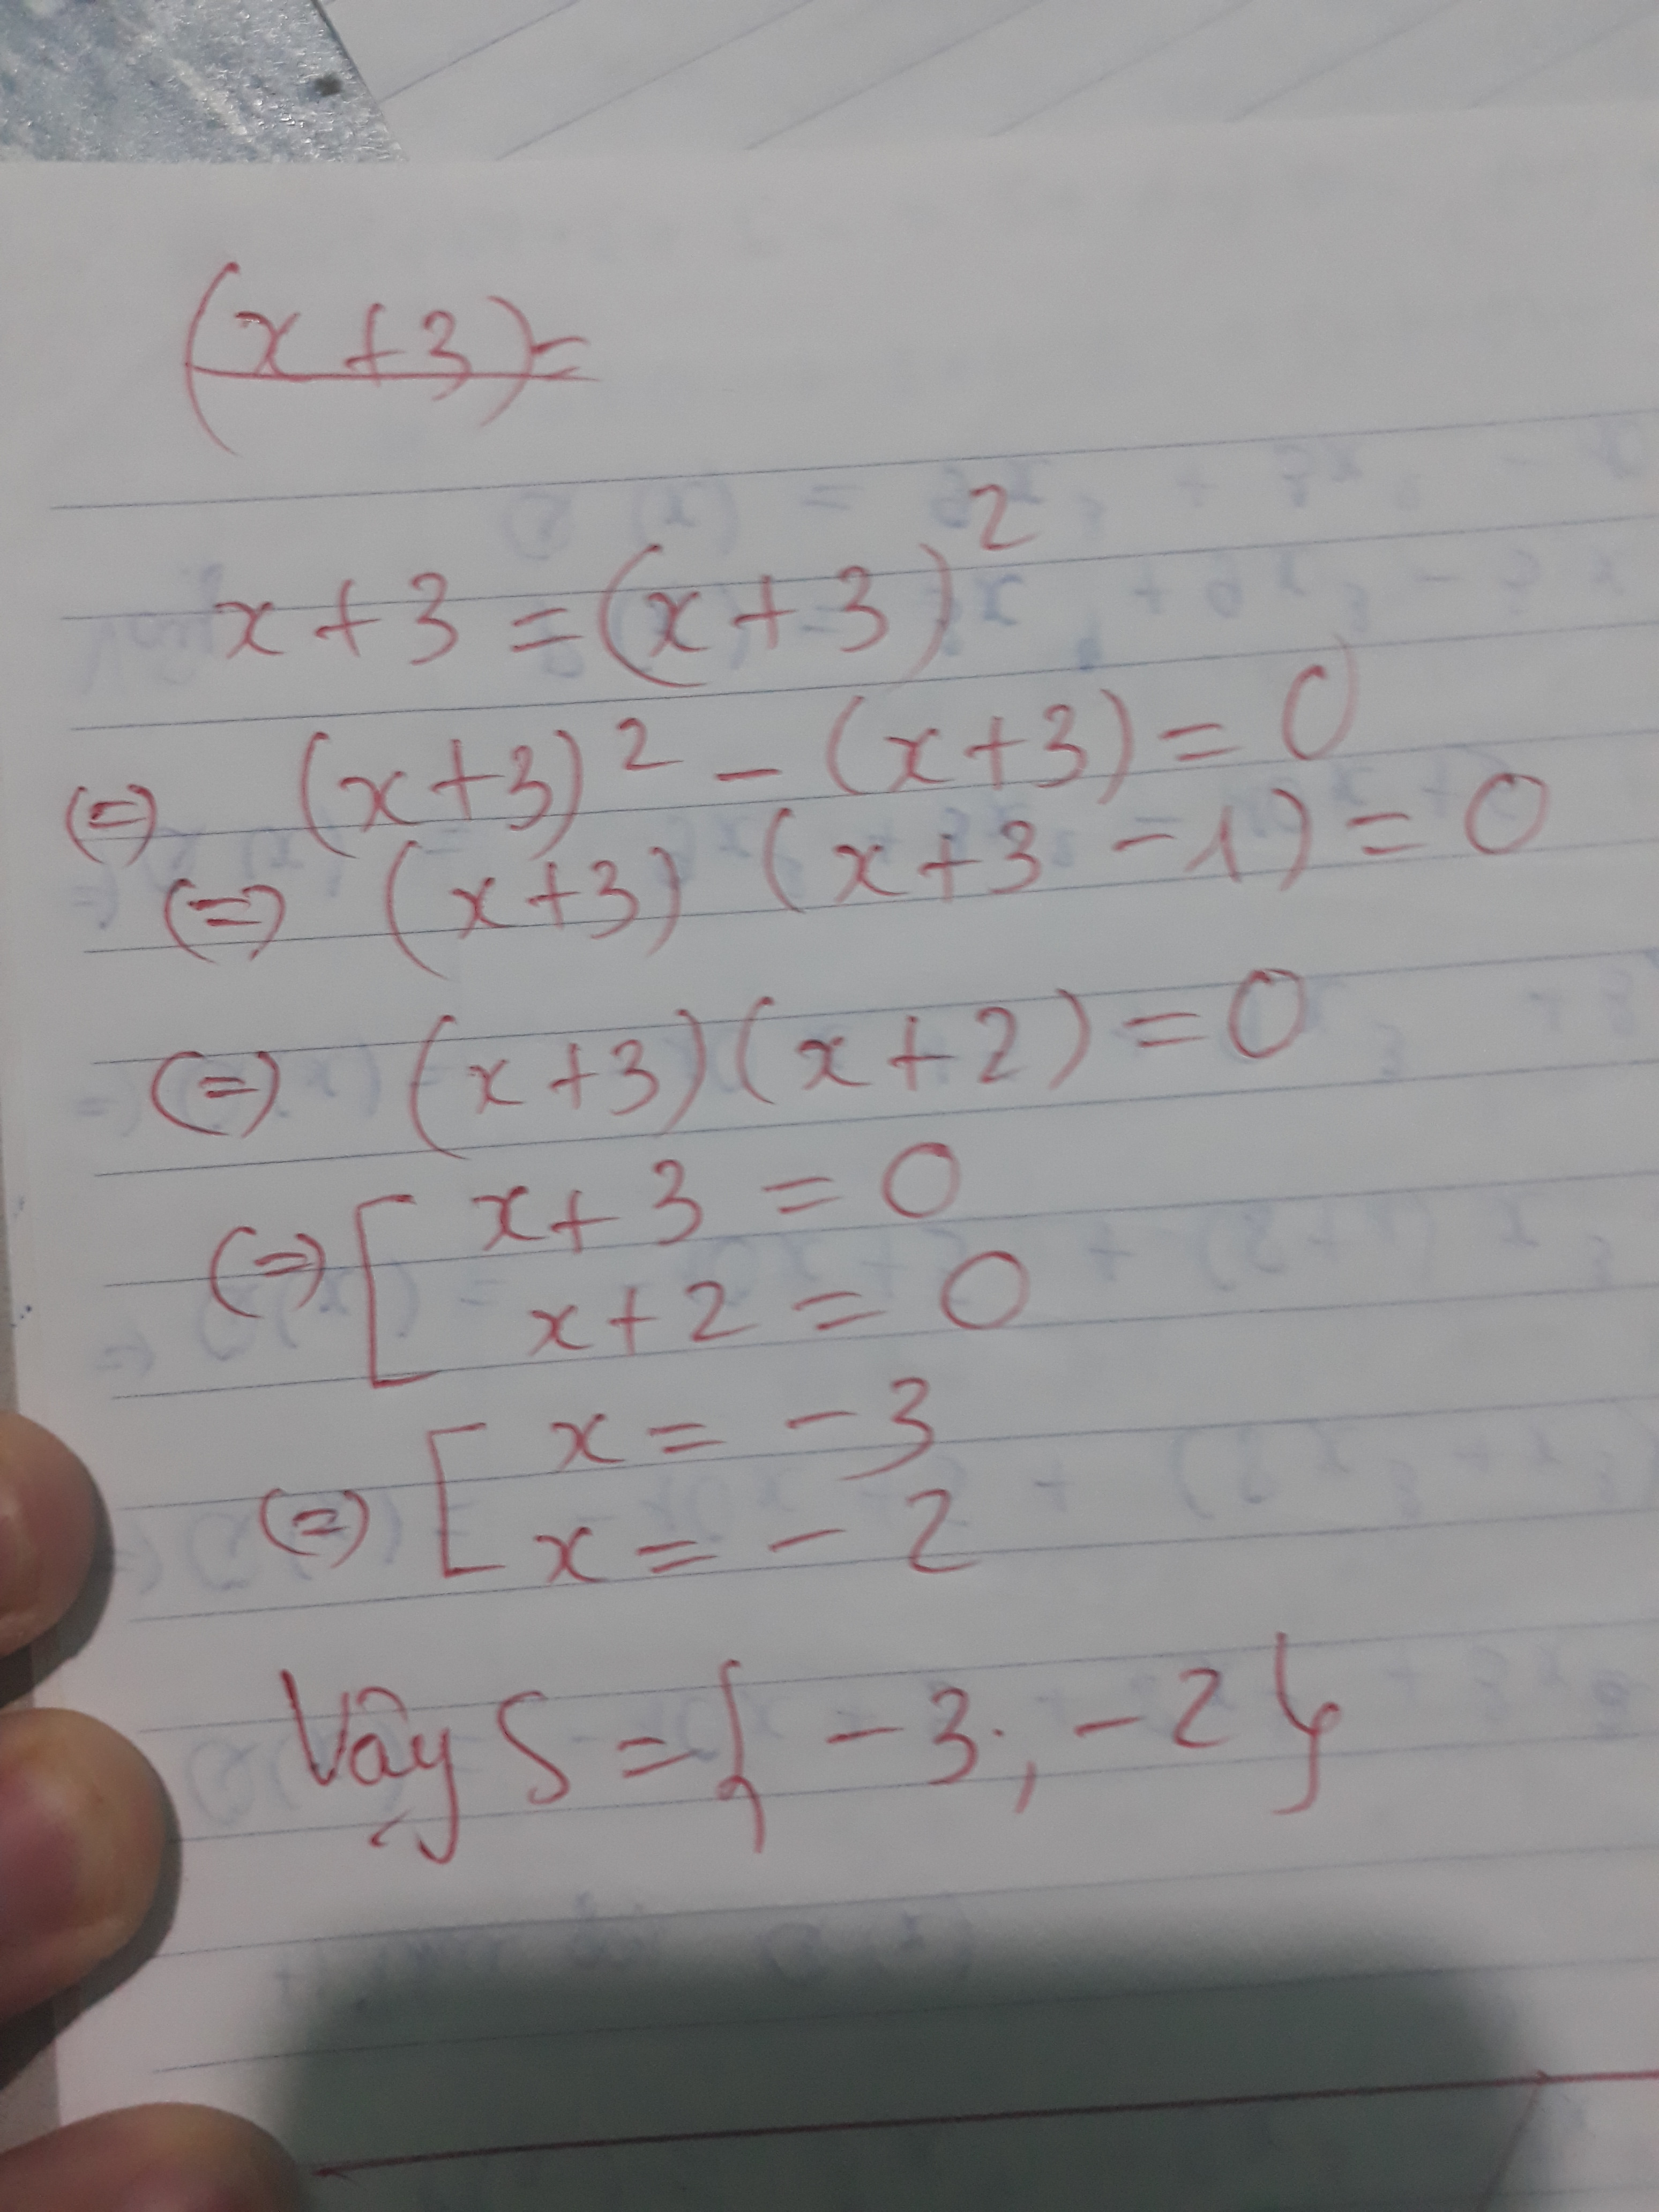 (x+3)=
x+3=(x+3)²
(=) (x+3)² - (x+3) = 0
(=) (x+3) (x+3-1) = 0
(=) (x+3)(x+2) = 0
(=) [ x+3 = 0
x+2 = 0
(=) [ x = -3
x = -2
Vậy S = { -3; -2 }